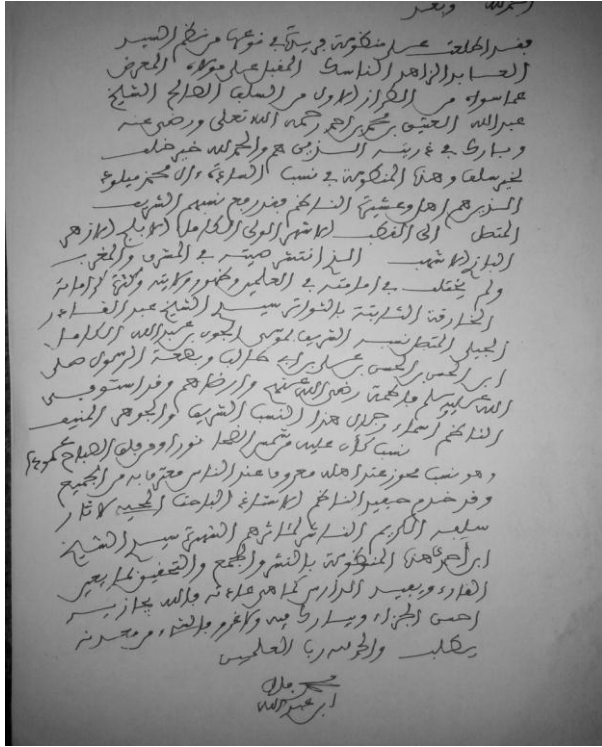 الحمد لله وبعد
فقد اطلعت على منظومة فريدة في نوعها من نظم السيد
العابد الزاهد الناسك المقبل على مولاه المعرض
عما سواه من الطراز الاول من السلف الصالح الشيخ
عبد الله العتيق بن محمد بن احمد رحمه الله تعلى ورضي عنه
وبارك في ذريته الذين هم والحمد لله خير خلف
لخير سلف وهذه المنظومة في نسب السادة ءال محمد
الذين هم اهل وعشيرة الناظم فقد رفع نسبهم الشريف
المتصل الى القطب الاشهر الولي الكامل الابلج الازهر
الباز الاشهب الذي انتشر صيته في المشرق والمغرب
ولم يختلف في امامته في العلمين وظهور ولايته وكثرة كراماته
الخارقة الثابتة بالتواتر سيدي الشيخ عبد القادر
الجيلي المتصل نسبه الشريف بموسى الجون بن عبد الله الكامل
ابن الحسن بن الحسن بن علي بن ابي طالب وبضعة الرسول صلى
الله عليه وسلم فاطمة رضي الله عنهم وارضاهم وقد استوفى
الناظم اسماء رجال هذا النسب الشريف والجوهر المنيف
نسب كأن عليه من شمس الضحا نورا ومن فلق الصباح عمودا
وهو نسب محوز عند اهله معروف عند الناس معترف به من الجميع
وقد خدم حفيد الناظم الاستاذ الباحث المحيي لاثار
سلفه الكريم الناشر لمآثرهم الشهيرة سيدي الشيخ
ابن احمد هذه المنظومة بالنشر والجمع والتحقيق لما يعين
القارء ويفيد الدارس كما هي عادته فالله يجازيه
احسن الجزاء ويبارك فيه ولا غرو فالشيء من معدنه
يطلب والحمد لله رب العلمين
محمد
ابن عبد الله